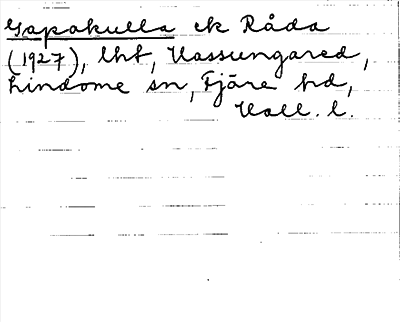 Gapakulla ek Råda
(1927), lht, Vassungared,
Lindome sn, Fjäre hd,
Hall. l.